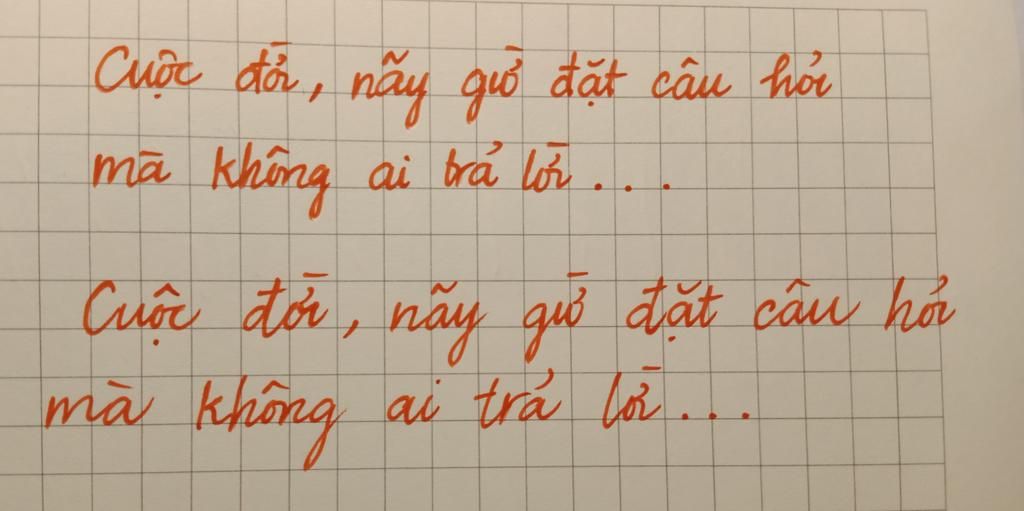 Cuộc đời, nãy giờ đặt câu hỏi
mà không ai trả lời...
Cuộc đời, nãy giờ đặt câu hỏi
mà không ai trả lời...